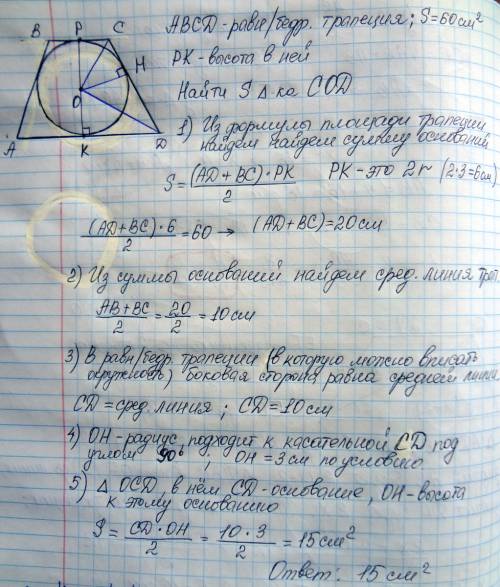 B P C
H
O
A K D
ABCD - равн/бедр. трапеция; S=60см²
PK - высота в ней
Найти S Δ-ка COD
1) Из формулы площади трапеции
найдем найдем сумму оснований
S = (AD+BC)·PK / 2   PK - это 2r (2·3=6см)
(AD+BC)·6 / 2 = 60 → (AD+BC)=20см
2) Из суммы оснований найдем сред. линия трап.
AB+BC / 2 = 20 / 2 = 10см
3) В равн/бедр. трапеции (в которую можно вписать
окружность) боковая сторона равна средней линии
CD = сред. линия; CD=10см
4) OH - радиус, подходит к касательной CD под
углом 90°, OH = 3см по условию
5) Δ OCD, в нём CD - основание, OH - высота
к этому основанию
S = CD·OH / 2 = 10·3 / 2 = 15см²
Ответ: 15см²